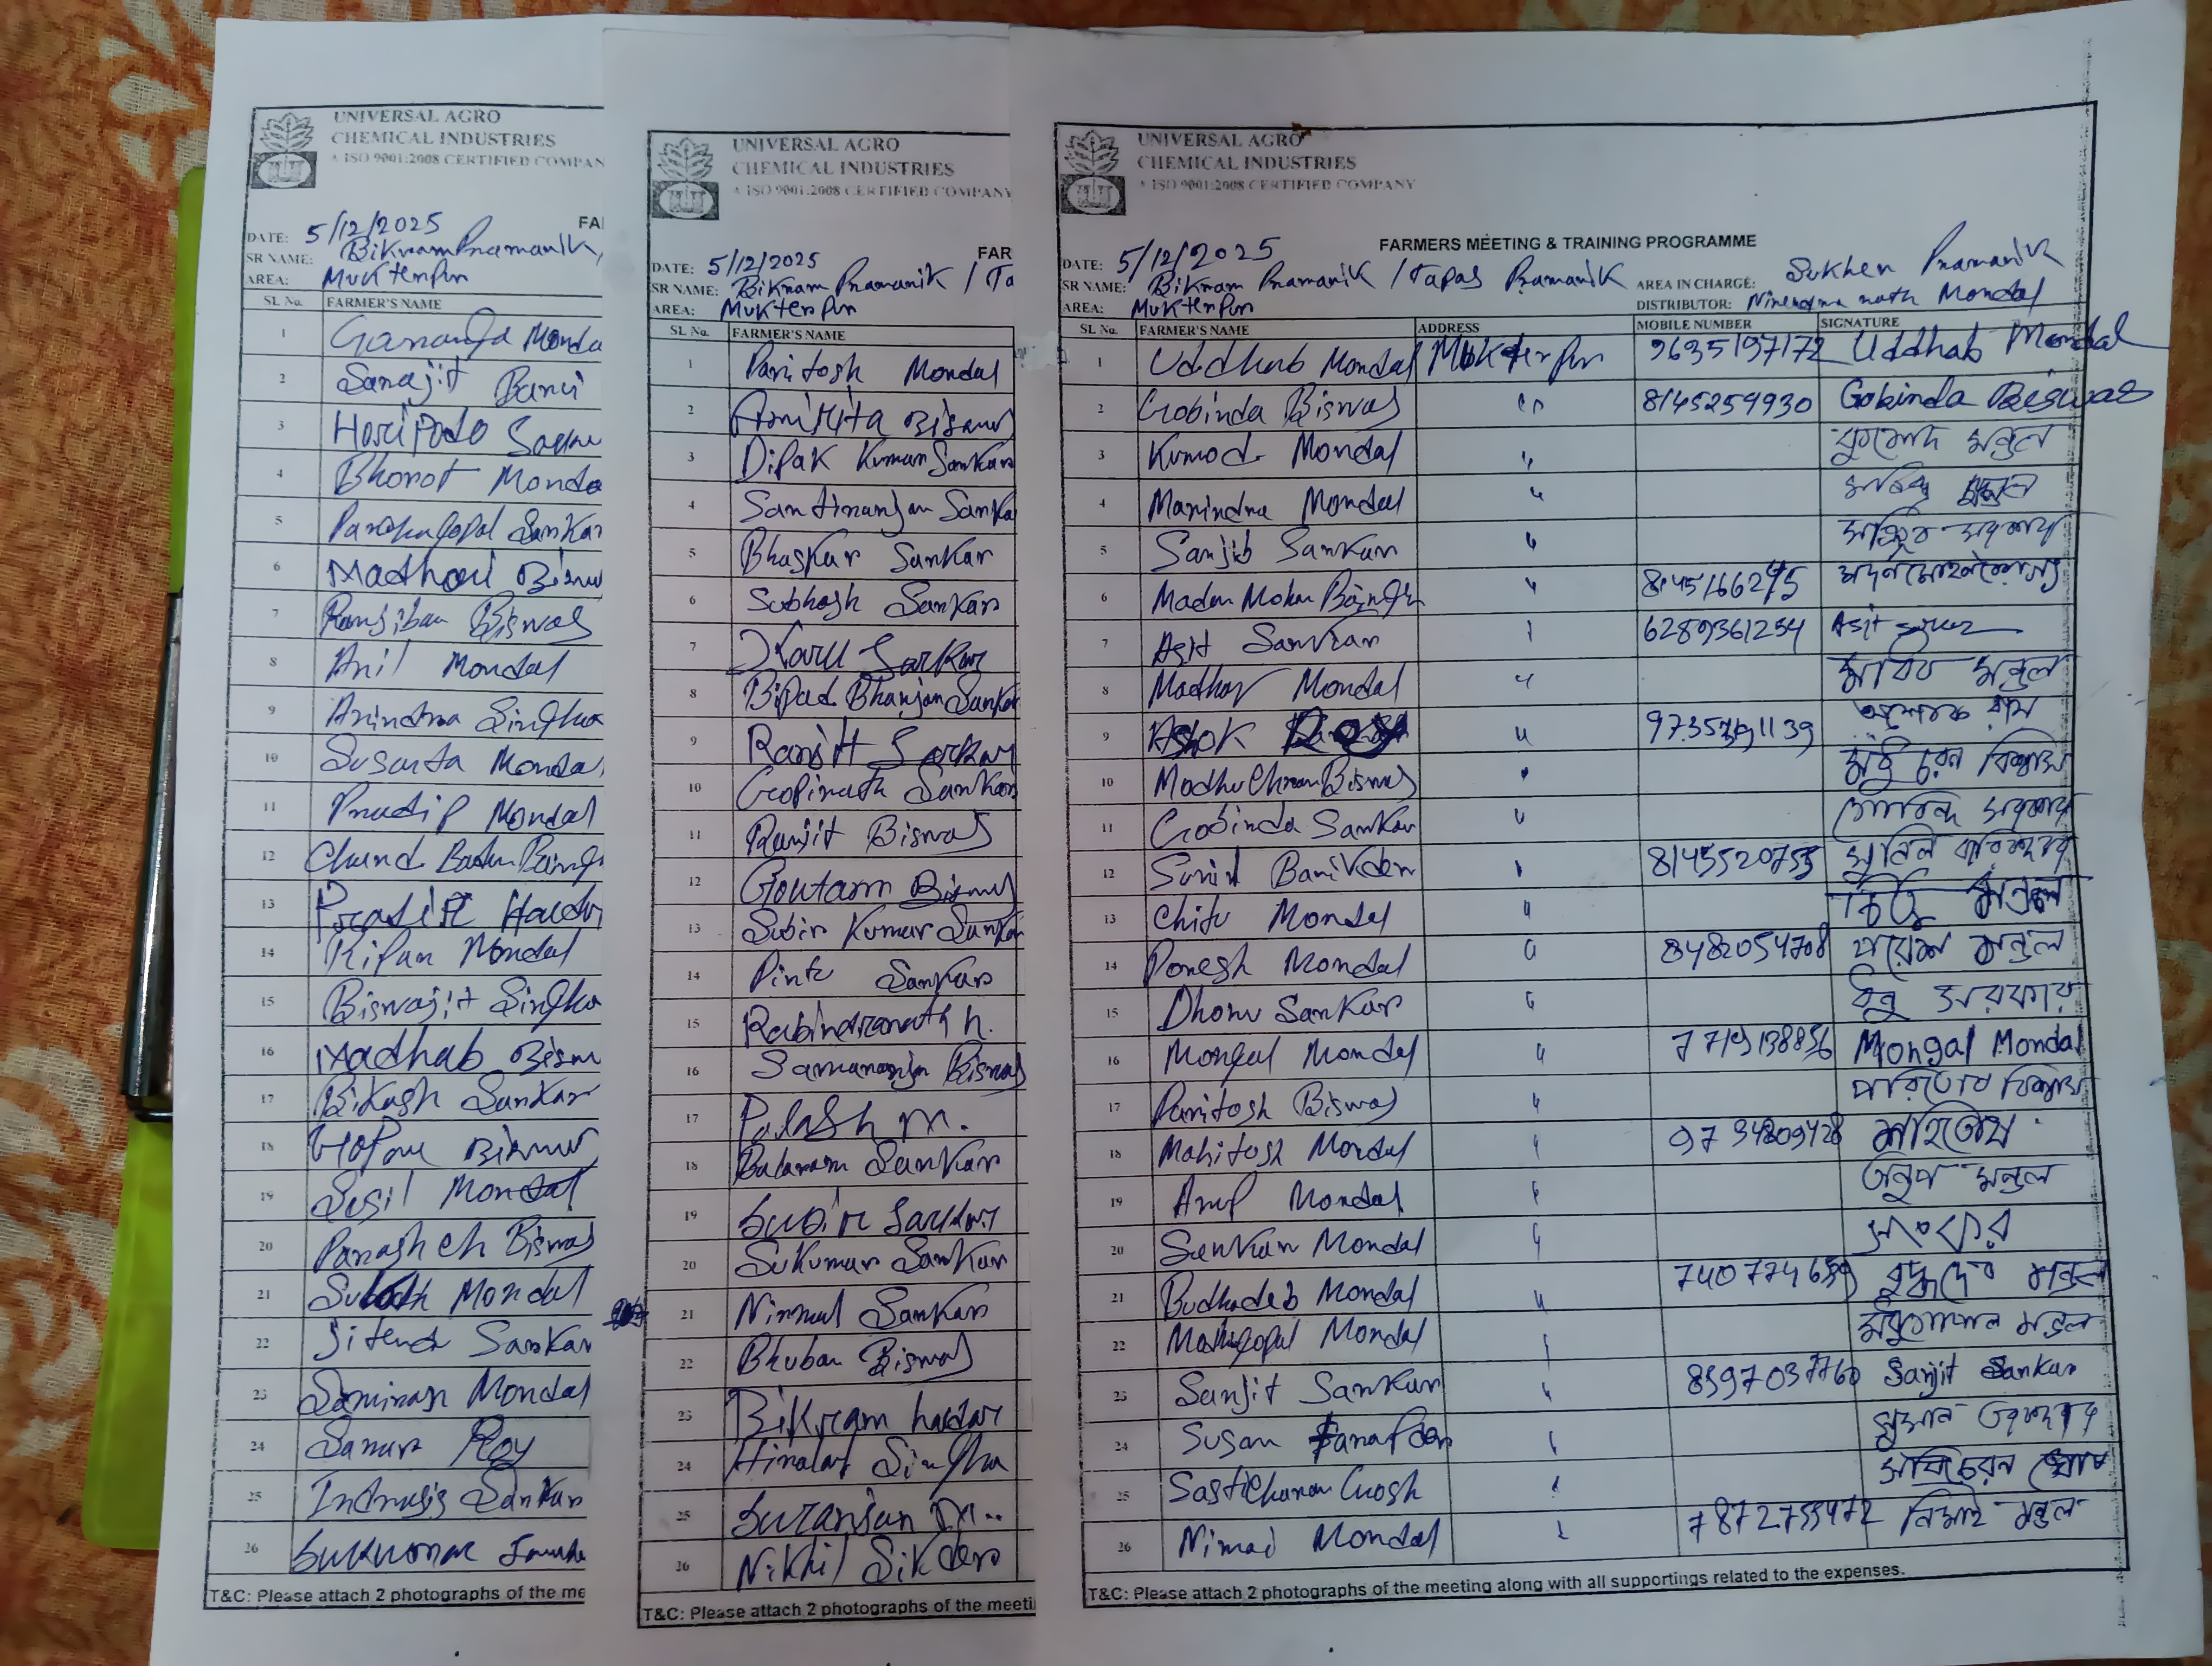 UNIVERSAL AGRO
CHEMICAL INDUSTRIES
A ISO 9001:2008 CERTIFIED COMPAN
FA
DATE: 5/12/2025
SR NAME: Bikram Pramanik,
AREA: Mukterpur
SL No. FARMER'S NAME
1 Monda
2 Sanajit
3 Haripodo
4 Bhorot Monda
5 Panchugopal Sarkar
6 Madhari Bisw
7 Ranjiban Biswas
8 Anil Mondal
9 Anindra Singha
10 Susanta Monda
11 Pradip Mondal
12 Chand
13 Prasit Haldar
14 Ripan Mondal
15 Biswajit Singha
16 Madhab Bisw
17 Bikash Sarkar
18 Biswas
19 Susil Mondal
20 Paresh ch Biswas
21 Mondal
22 Jitend Sarkar
23 Mondal
24 Samir Roy
25 Indrajit Sarkar
26 Sukumar
T&C: Please attach 2 photographs of the me
UNIVERSAL AGRO
CHEMICAL INDUSTRIES
A ISO 9001:2008 CERTIFIED COMPANY
FAR
DATE: 5/12/2025
SR NAME: Bikram Pramanik / Ta
AREA: Mukterpur
SL No. FARMER'S NAME
1 Paritosh Mondal
2 Amrita Biswas
3 Dipak Kumar Sarkar
4 Santiranjan Sarka
5 Bhaskar Sarkar
6 Subhash Sarkar
7 Sarkar
8 Bipad Bhanjan Sarkar
9 Ranjit Sarkar
10 Gopinath Sarkar
11 Ranjit Biswas
12 Goutam Biswas
13 Subir Kumar Sarkar
14 Pintu Sarkar
15 Rabindranath h.
16 Biswas
17 Palash m.
18 Balaram Sarkar
19 Subir Sarkar
20 Sukumar Sarkar
21 Nirmal Sarkar
22 Bhuban Biswas
23 Bikram haldar
24 Hiralal Singha
25 Suranjan m..
26 Nikhil Sikder
T&C: Please attach 2 photographs of the meeti
UNIVERSAL AGRO
CHEMICAL INDUSTRIES
A ISO 9001:2008 CERTIFIED COMPANY
FARMERS MEETING & TRAINING PROGRAMME
DATE: 5/12/2025
SR NAME: Bikram Pramanik / Tapas Pramanik AREA IN CHARGE: Sukhen Pramanik
AREA: Mukterpur DISTRIBUTOR: Nirendra nath Mondal
SL No. FARMER'S NAME ADDRESS MOBILE NUMBER SIGNATURE
1 Uddhab Mondal Mukterpur 9635197172 Uddhab Mondal
2 Gobinda Biswas " 8145259930 Gobinda Biswas
3 Kumod Mondal " কুমোদ মন্ডল
4 Manindra Mondal " মন্ডল
5 Sanjib Sarkar " সরকার
6 Madan Mohan "
7 Asit Sarkar 6289361254 Asit
8 Madhav Mondal " মাধব মন্ডল
9 Ashok Roy " অশোক রায়
10 Madhu Charan Biswas " মধু চরন বিশ্বাস
11 Gobinda Sarkar " গোবিন্দ সরকার
12 Sunil " সুনিল
13 Chitu Mondal " চিতু মন্ডল
14 Poresh Mondal " 8482054708 পরেশ মন্ডল
15 Dhonu Sarkar " ধনু সরকার
16 Mongal Mondal " Mongal Mondal
17 Paritosh Biswas " পরিতোষ বিশ্বাস
18 Mahitosh Mondal " মাহিতোষ
19 Anup Mondal " অনুপ মন্ডল
20 Sankar Mondal "
21 Budhadeb Mondal " বুদ্ধদেব মন্ডল
22 Mondal মন্ডল
23 Sanjit Sarkar " Sanjit Sarkar
24 Susan
25 Sasticharan Ghosh ষষ্টিচরন ঘোষ
26 Nimai Mondal নিমাই মন্ডল
T&C: Please attach 2 photographs of the meeting along with all supportings related to the expenses.